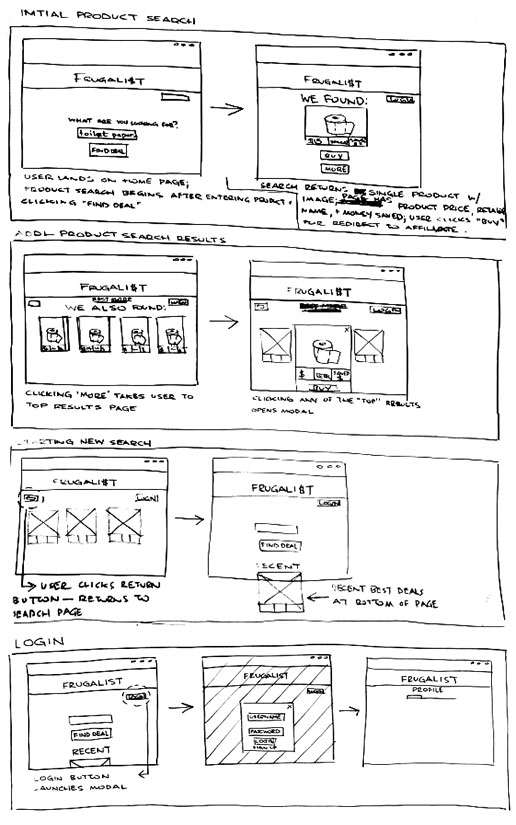 INITIAL PRODUCT SEARCH
FRUGALI$T
WHAT ARE YOU LOOKING FOR?
toilet paper
FIND DEAL
USER LANDS ON HOME PAGE;
PRODUCT SEARCH BEGINS AFTER ENTERING PRODUCT +
CLICKING "FIND DEAL"
FRUGALI$T
LOGIN
WE FOUND:
BUY
MORE
SEARCH RETURNS SINGLE PRODUCT W/
IMAGE, PRODUCT PRICE, RETAILER
NAME, + MONEY SAVED; USER CLICKS "BUY"
FOR REDIRECT TO AFFILIATE.
ADDL PRODUCT SEARCH RESULTS
FRUGALI$T
LOGIN
WE ALSO FOUND:
CLICKING "MORE" TAKES USER TO
TOP RESULTS PAGE
FRUGALI$T
LOGIN
X
$
BUY
CLICKING ANY OF THE "TOP" RESULTS
OPENS MODAL
STARTING NEW SEARCH
FRUGALI$T
LOGIN
USER CLICKS RETURN
BUTTON — RETURNS TO
SEARCH PAGE
FRUGALI$T
LOGIN
FIND DEAL
RECENT
RECENT BEST DEALS
AT BOTTOM OF PAGE
LOGIN
FRUGALI$T
LOGIN
FIND DEAL
RECENT
LOGIN BUTTON
LAUNCHES MODAL
FRUGALI$T
LOGIN
X
USERNAME
PASSWORD
LOGIN
SIGN UP
FRUGALI$T
PROFILE